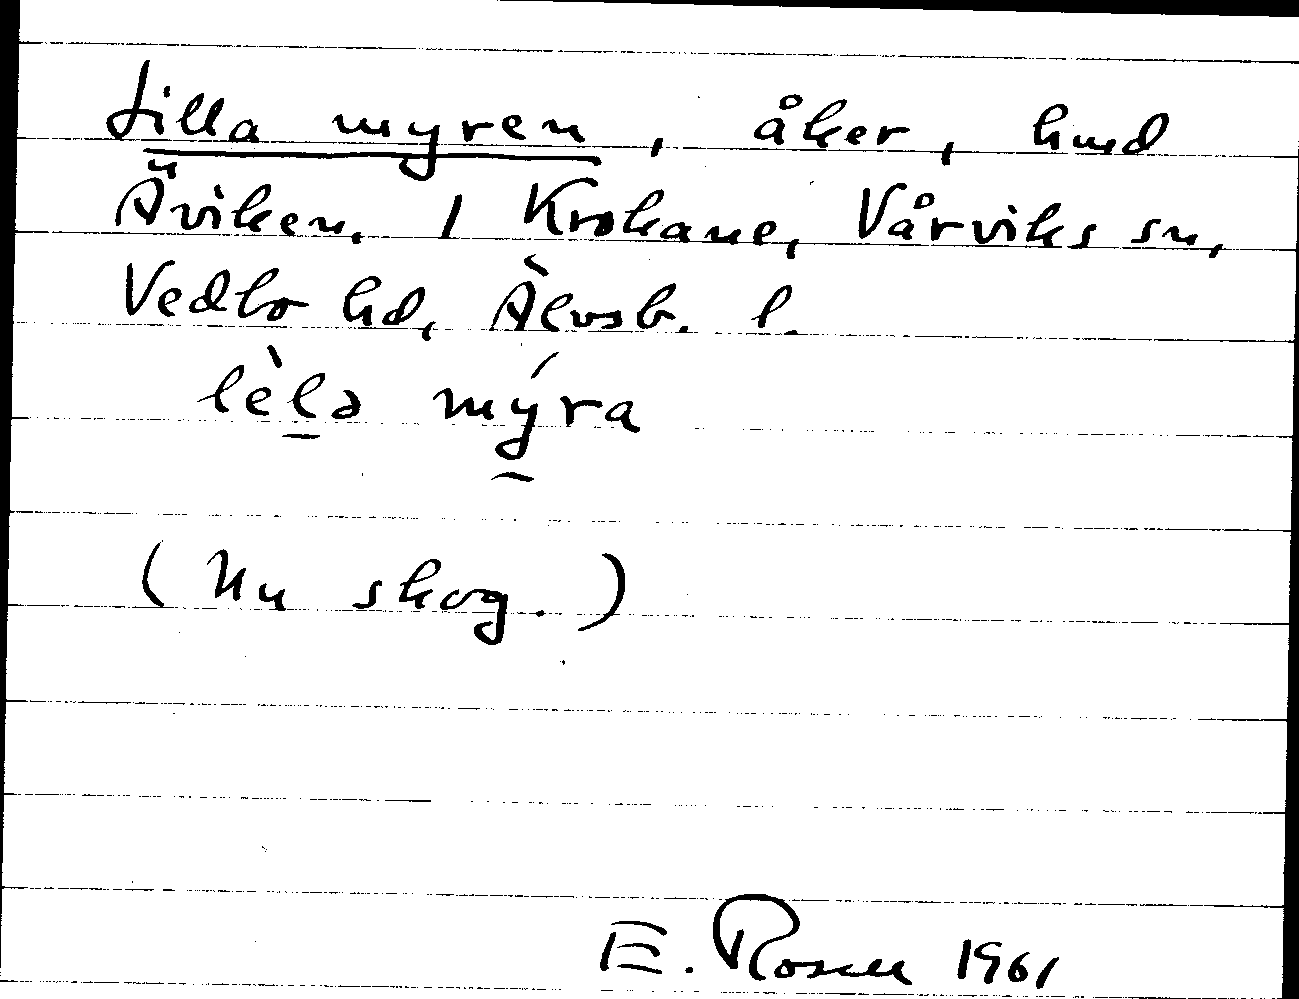 Lilla myren, åker, hmd
Äviken, 1 Krokane, Vårviks sn,
Vedbo hd, Älvsb. l.
lèlə mýra
(Nu skog.)
E. Rosell 1961